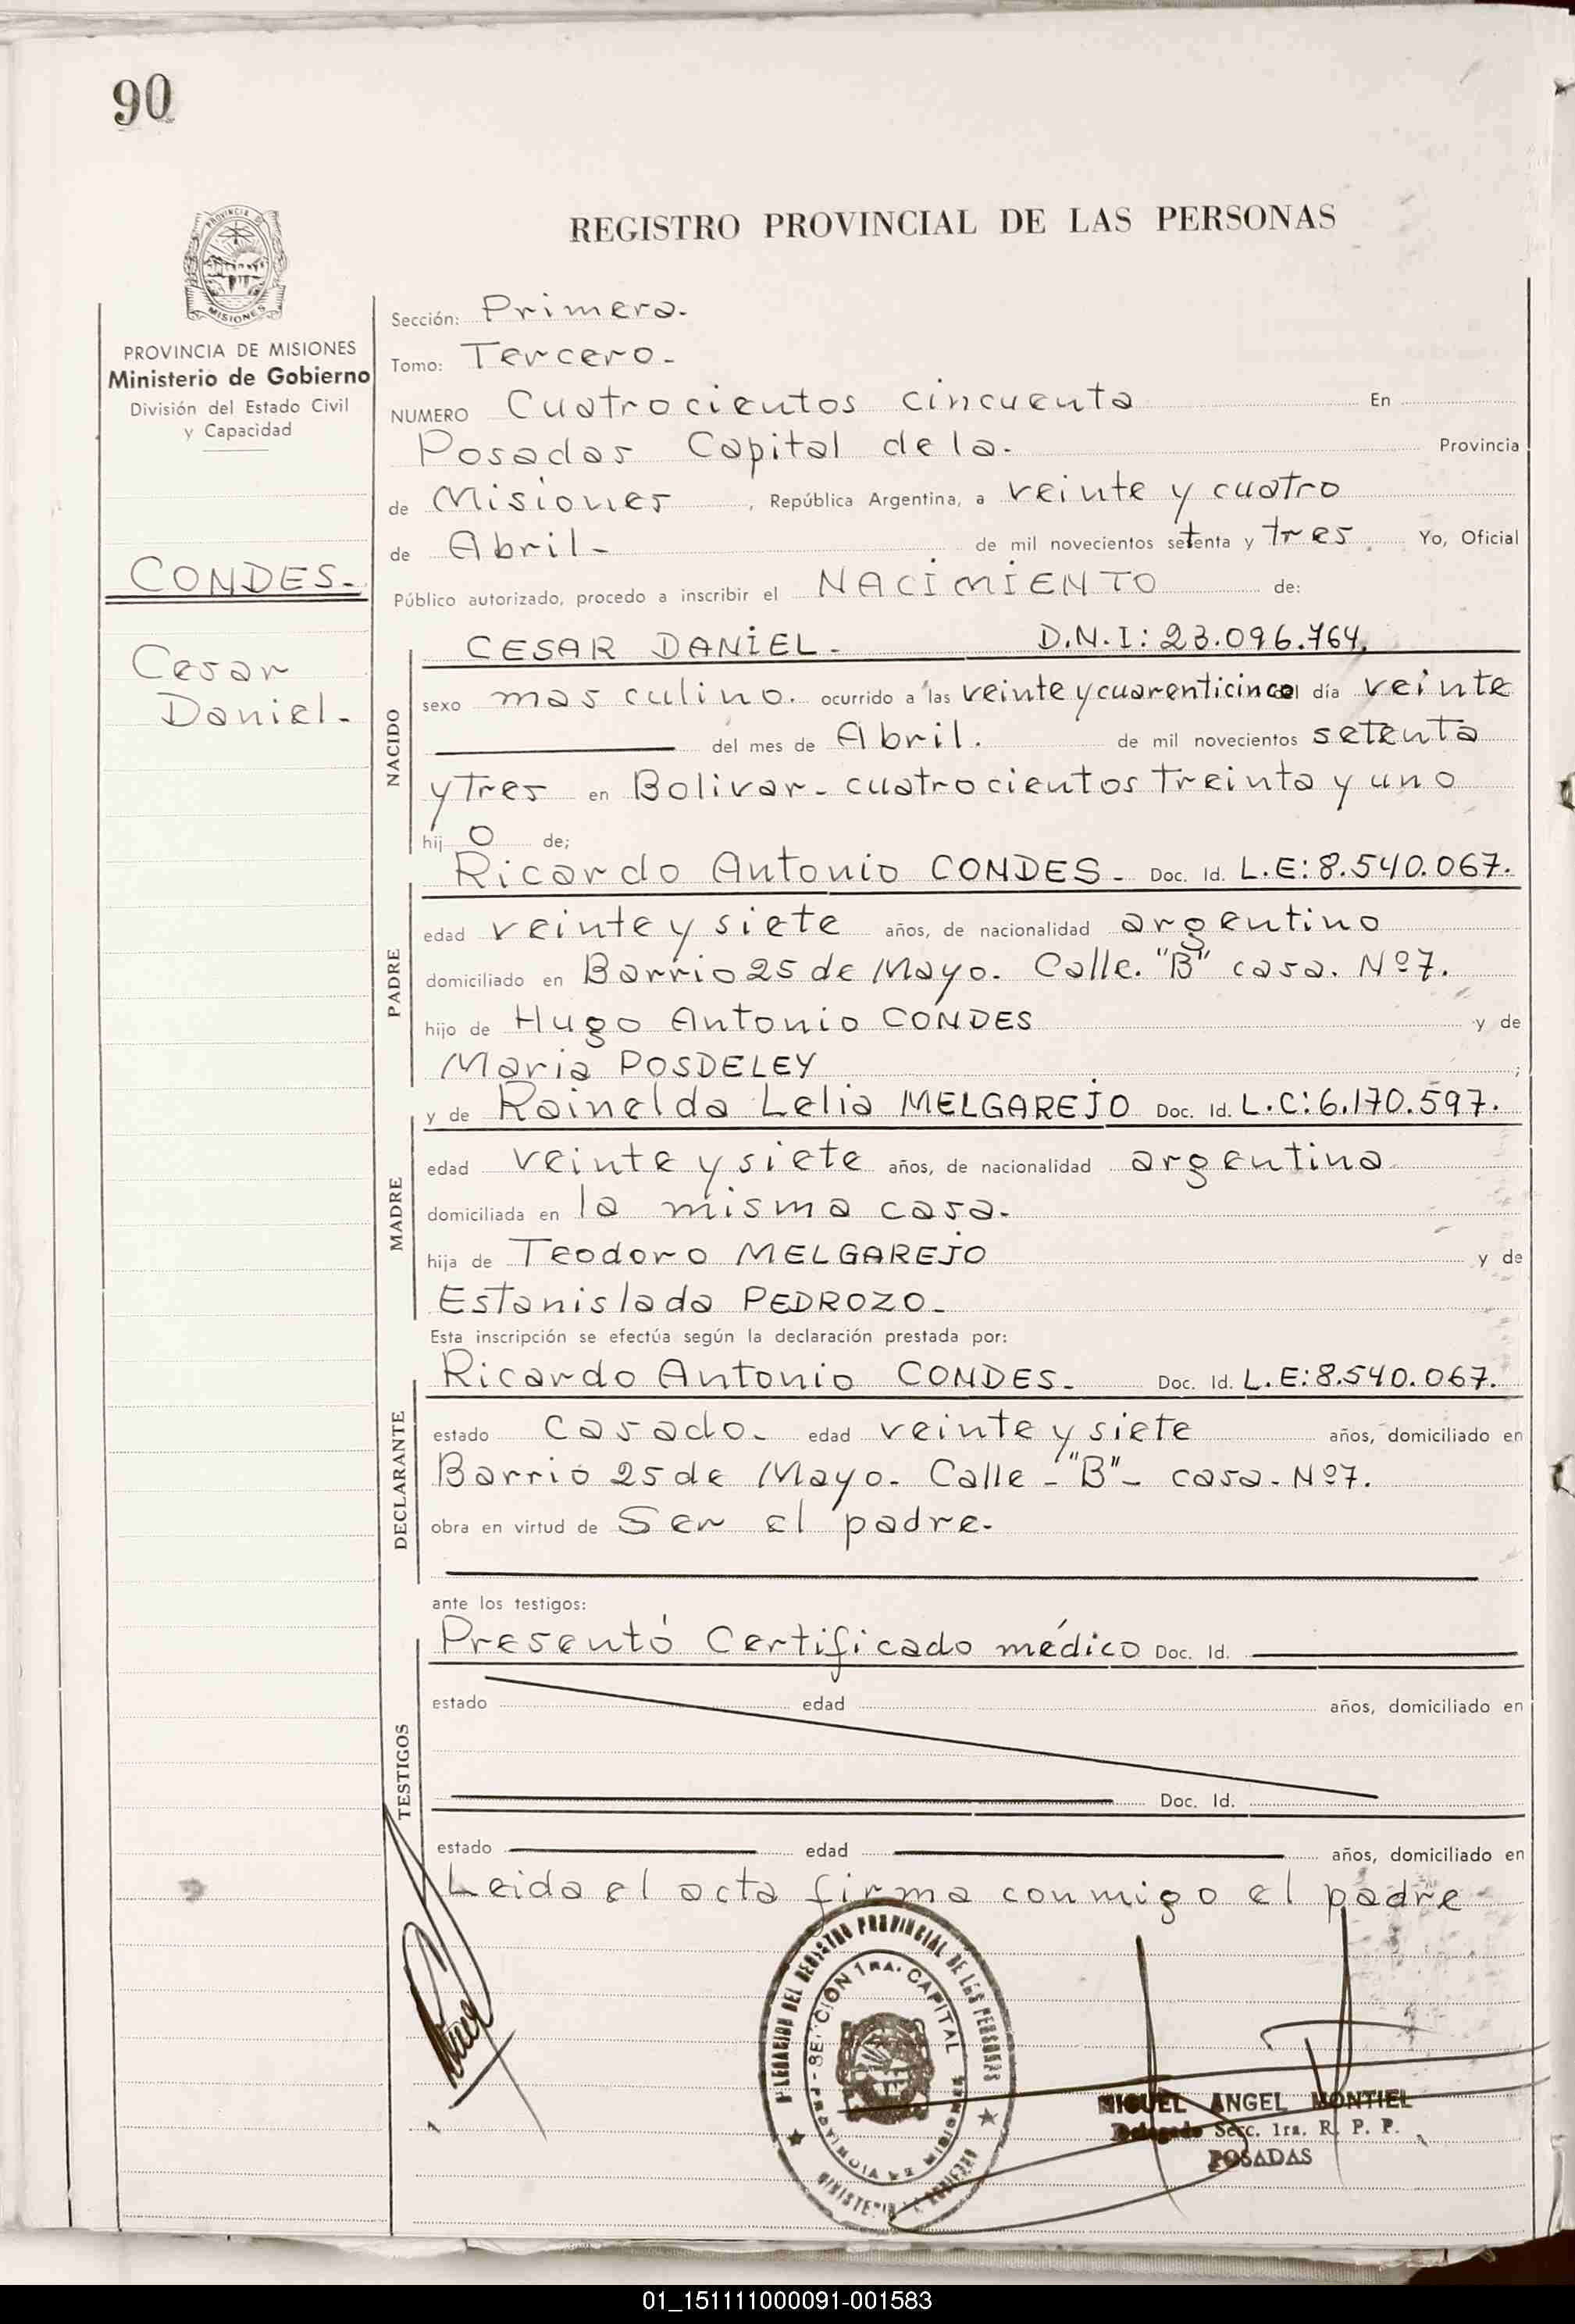 90
PROVINCIA DE
MISIONES
PROVINCIA DE MISIONES
Ministerio de Gobierno
División del Estado Civil
y Capacidad
CONDES.-
Cesar
Daniel.-
REGISTRO PROVINCIAL DE LAS PERSONAS
Sección: Primera.-
Tomo: Tercero.-
NUMERO Cuatrocientos cincuenta En
Posadas Capital de la. Provincia
de Misiones, República Argentina, a veinte y cuatro
de Abril.- de mil novecientos setenta y tres. Yo, Oficial
Público autorizado, procedo a inscribir el NACIMIENTO de:
NACIDO
CESAR DANIEL.- D.N.I: 23.096.764.
sexo masculino. ocurrido a las veinte y cuarenticinco del día veinte
del mes de Abril. de mil novecientos setenta
y Tres en Bolivar.- cuatrocientos Treinta y uno
hij o de;
PADRE
Ricardo Antonio CONDES.- Doc. Id. L.E: 8.540.067.
edad veinte y siete años, de nacionalidad argentino
domiciliado en Barrio 25 de Mayo. Calle. "B" casa. Nº 7.
hijo de Hugo Antonio CONDES y de
Maria POSDELEY ;
MADRE
y de Rainelda Lelia MELGAREJO Doc. Id. L.C: 6.170.597.
edad veinte y siete años, de nacionalidad argentina
domiciliada en la misma casa.-
hija de Teodoro MELGAREJO y de
Estanislada PEDROZO.-
Esta inscripción se efectúa según la declaración prestada por:
DECLARANTE
Ricardo Antonio CONDES.- Doc. Id. L.E: 8.540.067.
estado casado.- edad veinte y siete años, domiciliado en
Barrio 25 de Mayo.- Calle - "B" - casa.- Nº 7.
obra en virtud de Ser el padre.-
ante los testigos:
TESTIGOS
Presentó Certificado médico Doc. Id.
estado edad años, domiciliado en
Doc. Id.
estado edad años, domiciliado en
Leida el acta firma conmigo el padre
DELEGACION DEL REGISTRO PROVINCIAL DE LAS PERSONAS
SECCION 1RA. CAPITAL
PROVINCIA DE MISIONES
MINISTERIO DE GOBIERNO
MIGUEL ANGEL MONTIEL
Delegado Secc. 1ra. R. P. P.
POSADAS
01_151111000091-001583